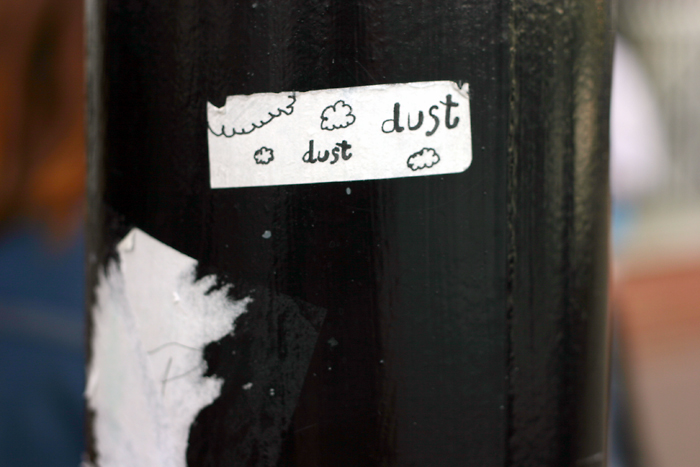 dust
dust